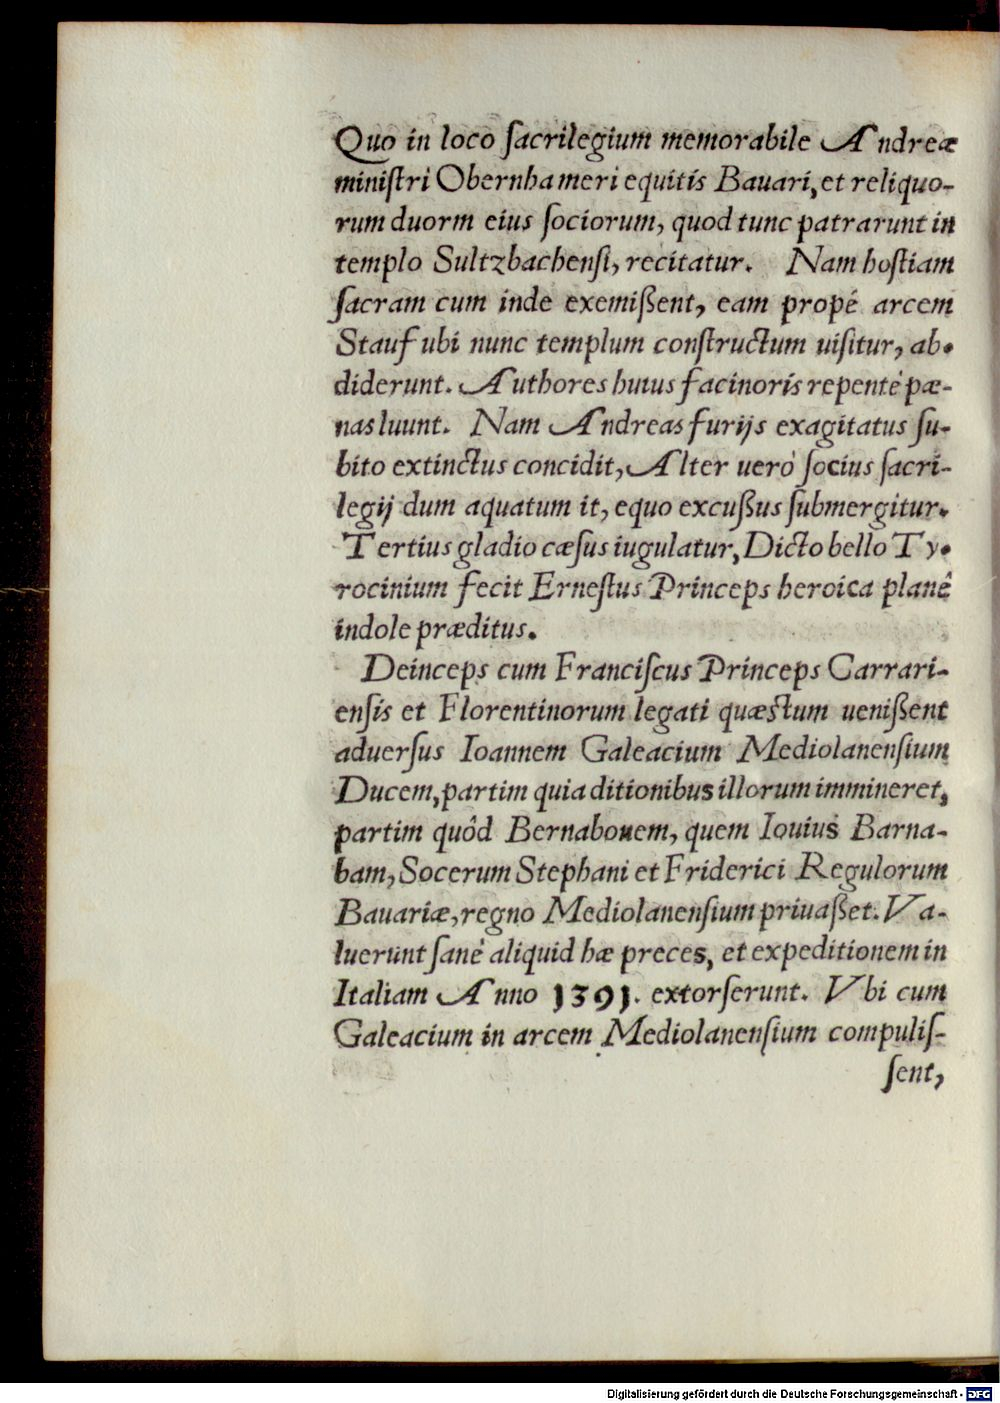 Quo in loco ſacrilegium memorabile Andreæ
miniſtri Obernhameri equitis Bauari, et reliquo-
rum duorm eius ſociorum, quod tunc patrarunt in
templo Sultzbachenſi, recitatur. Nam hoſtiam
ſacram cum inde exemißent, eam propè arcem
Stauf ubi nunc templum conſtructum uiſitur, ab-
diderunt. Authores huius facinoris repentè pæ-
nas luunt. Nam Andreas furijs exagitatus ſu-
bito extinctus concidit, Alter uerò ſocius ſacri-
legij dum aquatum it, equo excußus ſubmergitur.
Tertius gladio cæſus iugulatur, Dicto bello Ty-
rocinium fecit Erneſtus Princeps heroica planè
indole præditus.
Deinceps cum Franciſcus Princeps Carrari-
enſis et Florentinorum legati quæſtum uenißent
aduerſus Ioannem Galeacium Mediolanenſium
Ducem, partim quia ditionibus illorum immineret,
partim quòd Bernabouem, quem Iouius Barna-
bam, Socerum Stephani et Friderici Regulorum
Bauariæ, regno Mediolanenſium priuaßet. Va-
luerunt ſanè aliquid hæ preces, et expeditionem in
Italiam Anno 1391. extorſerunt. Vbi cum
Galeacium in arcem Mediolanenſium compuliſ-
ſent,
Digitalisierung gefördert durch die Deutsche Forschungsgemeinschaft - DFG